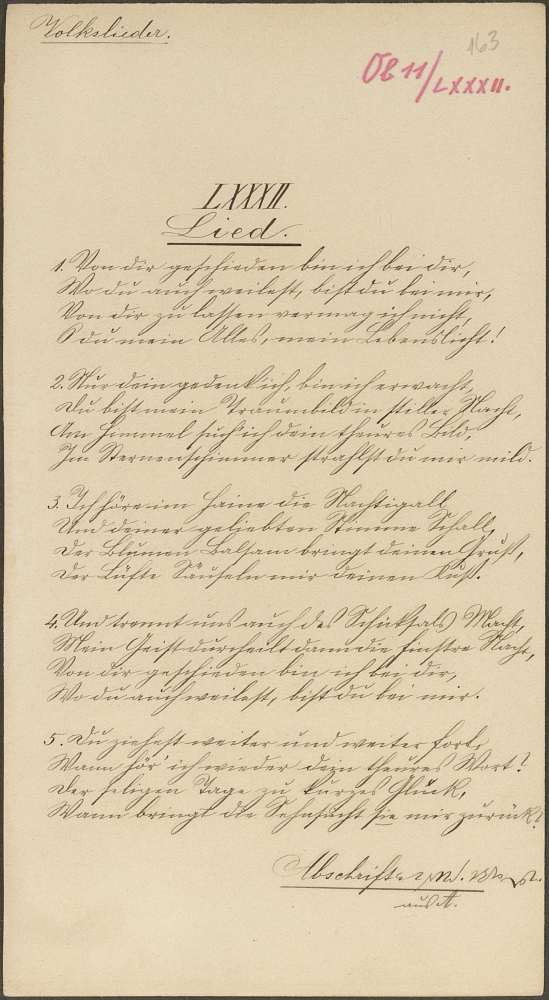 Volkslieder.
163
Ob 11/LXXXII.
LXXXII.
Lied.
1. Von dir geschieden bin ich bei dir,
Wo du auch weilest, bist du bei mir,
Von dir zu lassen vermag ich nicht,
O du mein Alles, mein Lebenslicht!
2. Nur dein gedenk' ich, bin ich erwacht,
Du bist mein Traumbild in stiller Nacht,
Am Himmel such' ich dein theures Bild,
Im Sternenschimmer strahlst du mir mild.
3. Ich höre im Haine die Nachtigall
Und deiner geliebten Stimme Schall,
Der Blumen Balsam bringt deinen Gruß,
Der Lüfte Säuseln mir deinen Kuß.
4. Und trennt uns auch des Schicksals Macht,
Mein Geist durcheilt dann die finstre Nacht,
Von dir geschieden bin ich bei dir,
Wo du auch weilest, bist du bei mir.
5. Du ziehest weiter und weiter fort,
Wann hör' ich wieder dein theures Wort?
Der seligen Tage zu kurzes Glück,
Wann bringt die Sehnsucht sie mir zurück?
Abschrift
aus A.